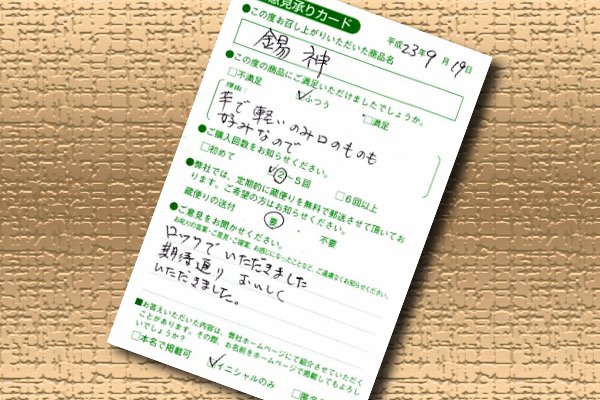 意見承りカード
平成23年9月19日
●この度お召し上がりいただいた商品名
錫神
●この度の商品にご満足いただけましたでしょうか。
□不満足 ☑ふつう □満足
理由:
芋で軽いのみ口のものも
好みなので
●ご購入回数をお知らせください。
□初めて ②~5回 □6回以上
●弊社では、定期的に蔵便りを無料で郵送させて頂いてお
ります。ご希望の方はお知らせください。
蔵便りの送付 要 ・ 不要
●ご意見をお聞かせください。
お叱りの言葉・ご意見・ご提案、お感じになったことなど、ご遠慮なくお知らせください。
ロックでいただきました
期待通りおいしく
いただきました。
■お答えいただいた内容は、弊社ホームページにて紹介させていただく
ことがあります。その際、お名前をホームページで掲載してもよろし
いでしょうか?
□本名で掲載可 ☑イニシャルのみ □匿名